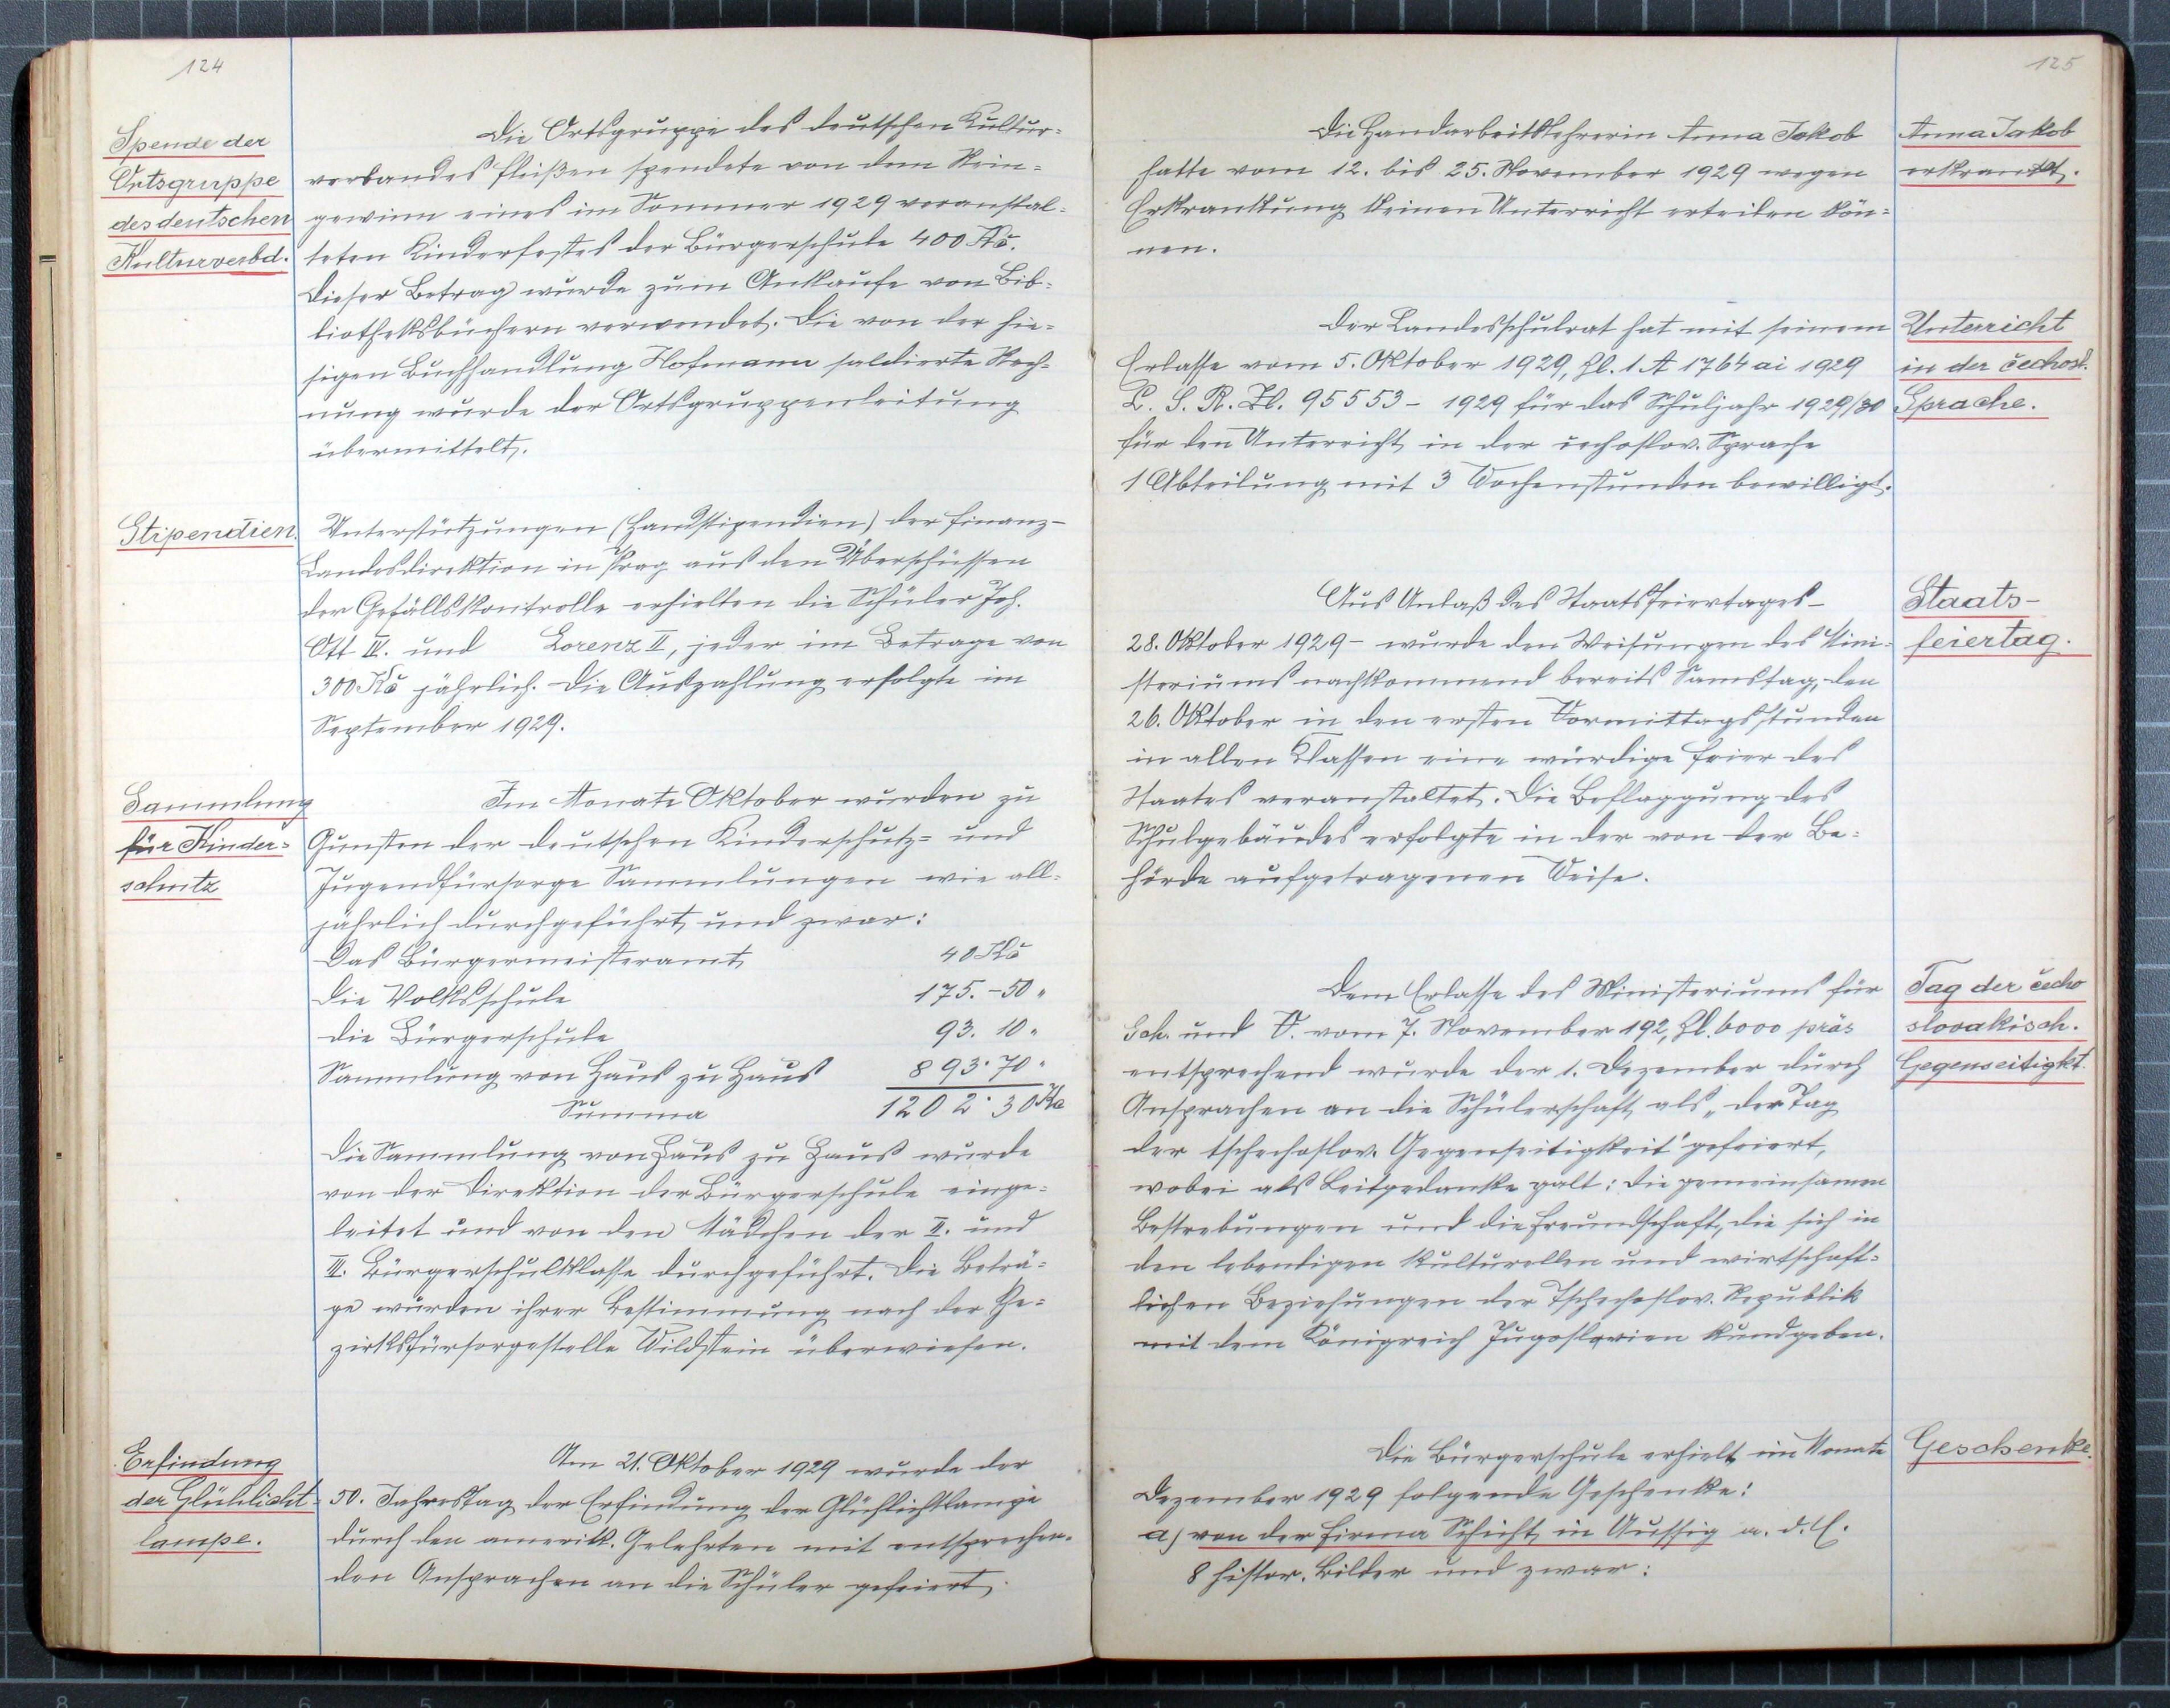 124
Spende der
Ortsgruppe
des deutschen
Kulturverbd.
Die Ortsgruppe des deutschen Kultur-
verbandes Fleißen spendete von dem Rein-
gewinn eines im Sommer 1929 veranstal-
teten Kinderfestes der Bürgerschule 400 Kč.
Dieser Betrag wurde zum Ankaufe von Bib-
liotheksbüchern verwendet. Die von der hie-
sigen Buchhandlung Hofmann saldierte Rech-
nung wurde der Ortsgruppenleitung
übermittelt.
Stipendien.
Unterstützungen (Handstipendien) der Finanz-
Landesdirektion in Prag aus den Überschüssen
der Gefällskontrolle erhielten die Schüler Joh.
Ott III. und Lorenz II, jeder im Betrage von
300 Kč jährlich. Die Auszahlung erfolgte im
September 1929.
Sammlung
für Kinder-
schutz
Im Monate Oktober wurden zu
Gunsten der deutschen Kinderschutz- und
Jugendfürsorge Sammlungen wie all-
jährlich durchgeführt und zwar:
Das Bürgermeisteramt 40 Kč
Die Volksschule 175.-50 "
Die Bürgerschule 93. 10 "
Sammlung von Haus zu Haus 893·70 "
Summa 1202·30 Kč
Die Sammlung von Haus zu Haus wurde
von der Direktion der Bürgerschule einge-
leitet und von den Mädchen der II. und
III. Bürgerschulklasse durchgeführt. Die Beträ-
ge wurden ihrer Bestimmung nach der Be-
zirksfürsorgestelle Wildstein überwiesen.
Erfindung
der Glühlicht-
lampe.
Am 21. Oktober 1929 wurde der
50. Jahrestag der Erfindung der Glühlichtlampe
durch den amerik. Gelehrten mit entsprechen-
den Ansprachen an die Schüler gefeiert.
125
Die Handarbeitslehrerin Anna Jakob
hatte vom 12. bis 25. November 1929 wegen
Erkrankung keinen Unterricht erteilen kön-
nen.
Anna Jakob
erkrankt.
Der Landesschulrat hat mit seinem
Erlasse vom 5. Oktober 1929, Zl. 1 A 1764 ai 1929
L. S. R. Zl. 95553 - 1929 für das Schuljahr 1929/30
für den Unterricht in der čechoslov. Sprache
1 Abteilung mit 3 Wochenstunden bewilligt.
Unterricht
in der čechosl.
Sprache.
Aus Anlaß des Staatsfeiertages -
28. Oktober 1929 - wurde den Weisungen des Mini-
steriums nachkommend bereits Samstag, den
26. Oktober in den ersten Vormittagsstunden
in allen Klassen eine würdige Feier des
Staates veranstaltet. Die Beflaggung des
Schulgebäudes erfolgte in der von der Be-
hörde aufgetragenen Weise.
Staats-
feiertag.
Dem Erlasse des Ministeriums für
Sch. und V. vom 7. November 192, Zl. 6000 präs
entsprechend wurde der 1. Dezember durch
Ansprachen an die Schülerschaft als „der Tag
der tschechoslov. Gegenseitigkeit" gefeiert,
wobei als Leitgedanke galt: Die gemeinsamen
Bestrebungen und die Freundschaft, die sich in
den lebendigen kulturellen und wirtschaft-
lichen Beziehungen der Tschechoslov. Republik
mit dem Königreich Jugoslavien kundgeben.
Tag der čecho
slovakisch.
Gegenseitigkt.
Die Bürgerschule erhielt im Monate
Dezember 1929 folgende Geschenke:
a) von der Firma Schicht in Aussig a. d. E.
8 histor. Bilder und zwar:
Geschenke.